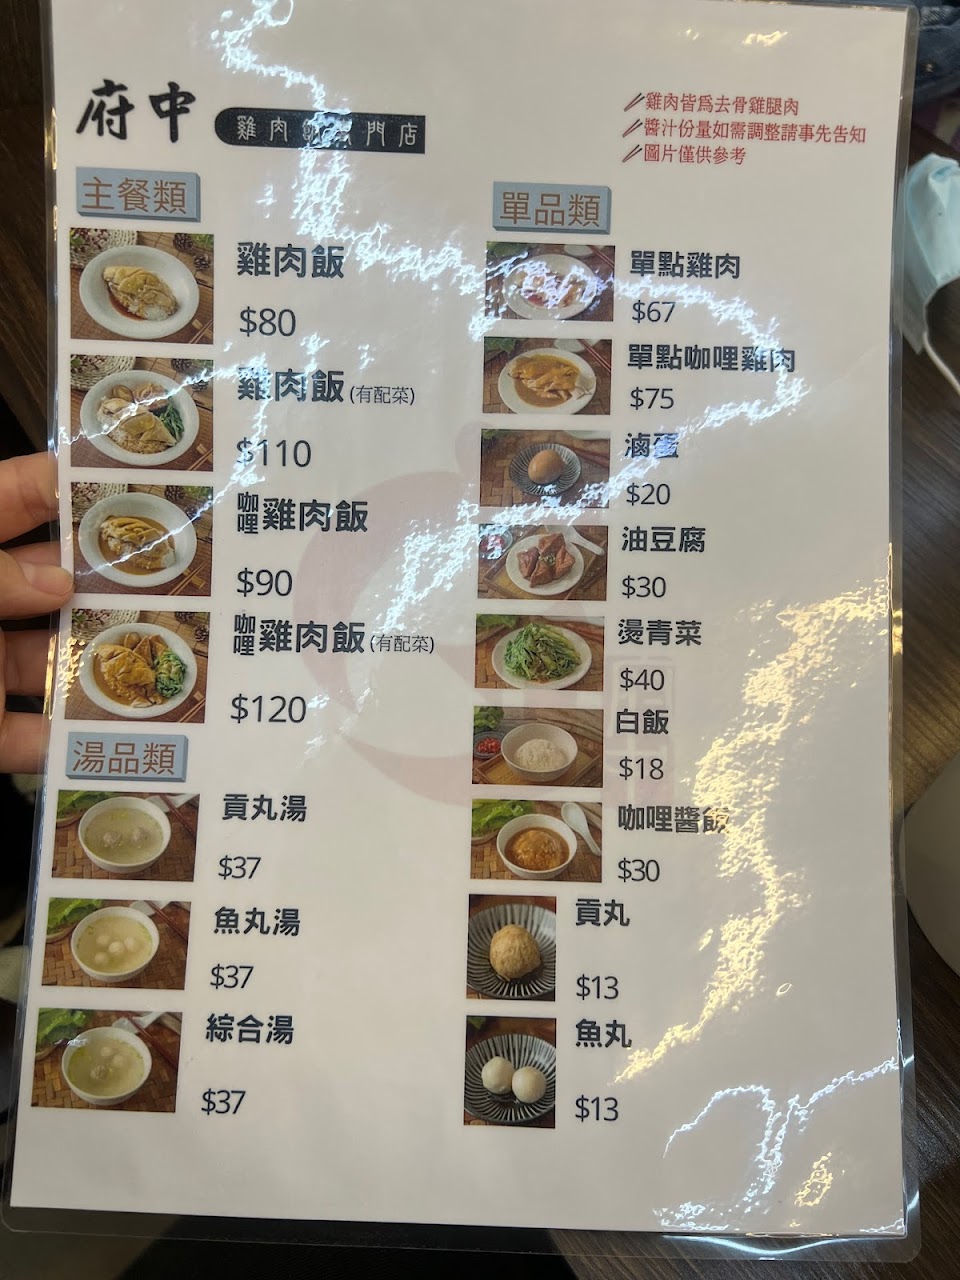 府中
雞肉飯專門店
雞肉皆為去骨雞腿肉
醬汁份量如需調整請事先告知
圖片僅供參考
主餐類
雞肉飯
$80
雞肉飯(有配菜)
$110
咖哩雞肉飯
$90
咖哩雞肉飯(有配菜)
$120
湯品類
貢丸湯
$37
魚丸湯
$37
綜合湯
$37
單品類
單點雞肉
$67
單點咖哩雞肉
$75
滷蛋
$20
油豆腐
$30
燙青菜
$40
白飯
$18
咖哩醬飯
$30
貢丸
$13
魚丸
$13